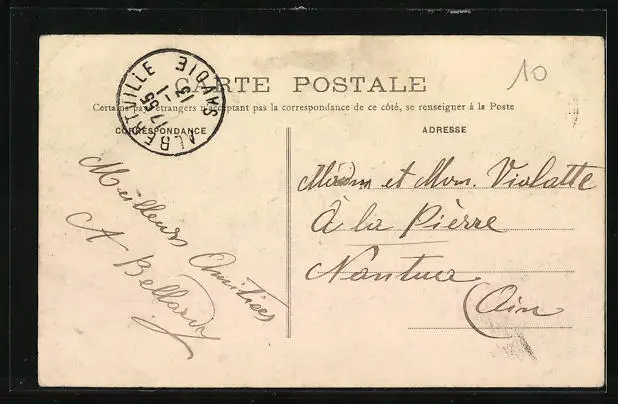 CARTE POSTALE
Certains pays étrangers n'acceptant pas la correspondance de ce côté, se renseigner à la Poste
CORRESPONDANCE
ADRESSE
ALBERTVILLE SAVOIE
13 -1
17 55
10
Meilleurs Amitiées
A Bellardy
et Mon. Violatte
À la Pièrre
Nantua
(Ain